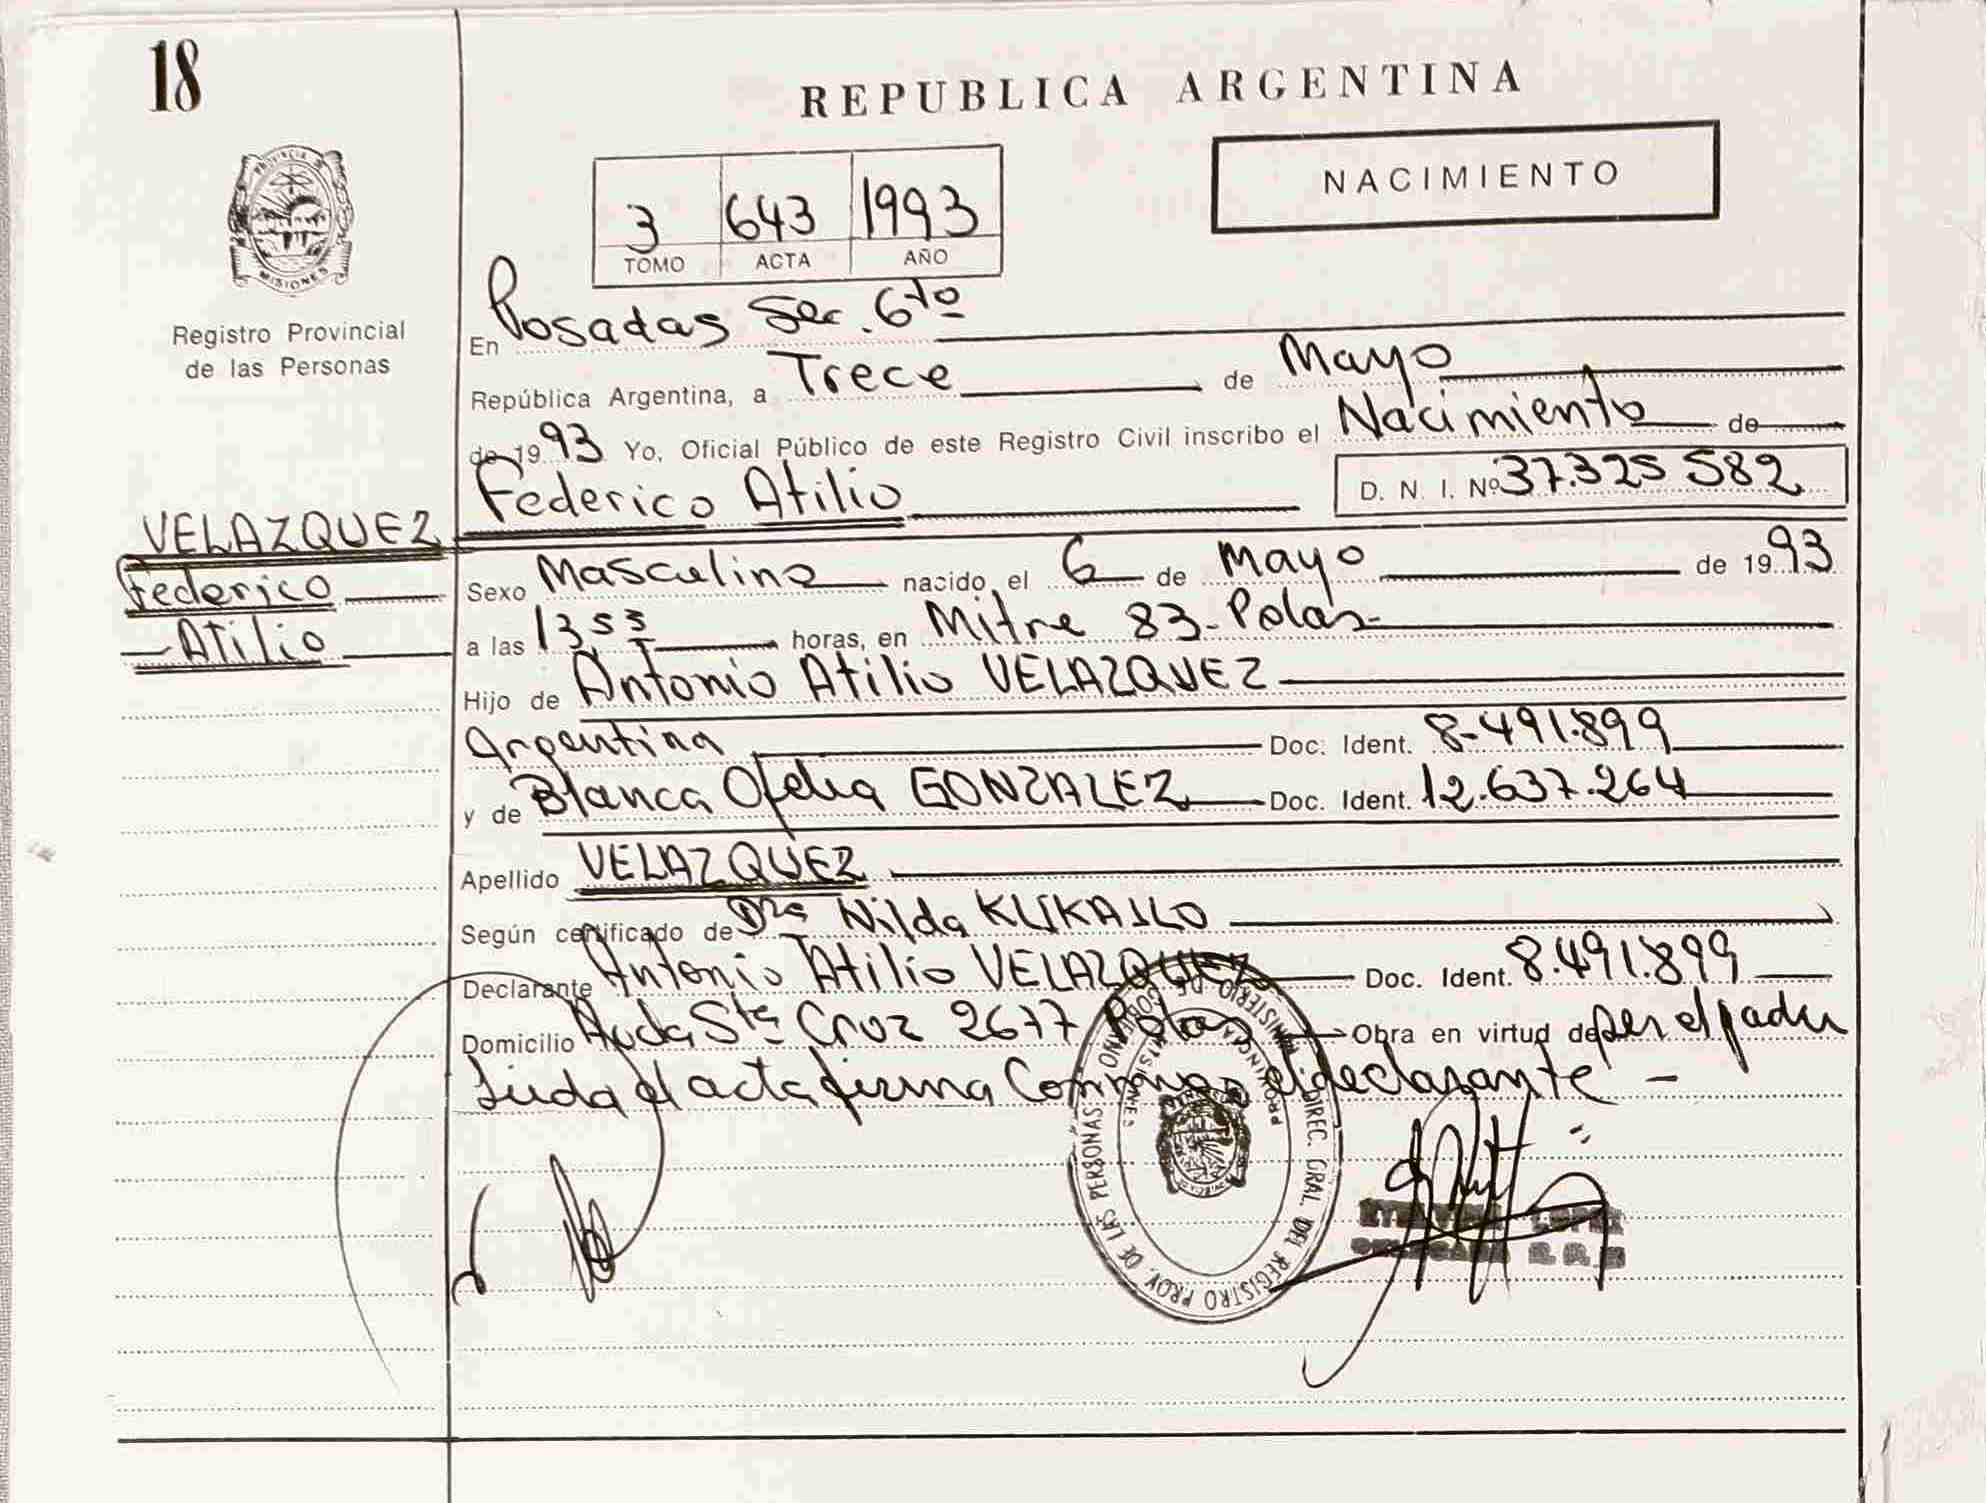 18
REPUBLICA ARGENTINA
NACIMIENTO
3 643 1993
TOMO ACTA AÑO
PROVINCIA DE
MISIONES
Registro Provincial
de las Personas
En Posadas Sec. 6to
República Argentina, a Trece de Mayo
de 1993 Yo, Oficial Público de este Registro Civil inscribo el Nacimiento de
Federico Atilio D. N. I. Nº 37.325 582
VELAZQUEZ
Federico
Atilio
Sexo Masculino nacido el 6 de Mayo de 1993
a las 13,53 horas, en Mitre 83- Pdas-
Hijo de Antonio Atilio VELAZQUEZ
Argentina Doc. Ident. 8-491.899
y de Blanca Ofelia GONZALEZ Doc. Ident. 12.637.264
Apellido VELAZQUEZ
Según certificado de Dra Nilda
Declarante Antonio Atilio VELAZQUEZ Doc. Ident. 8.491.899
Domicilio Avda Sta Cruz 2677 Pdas Obra en virtud de ser el padre
Leida el acta firma Conmigo el declarante -
MINISTERIO DE GOBIERNO
PROVINCIA MISIONES
DIREC. GRAL. DEL REGISTRO PROV. DE LAS PERSONAS
LOPEZ